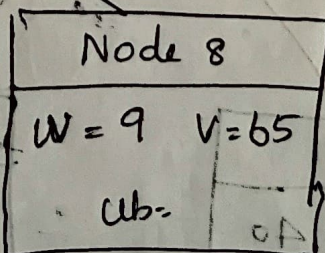 Node 8
W = 9 V = 65
Ub=